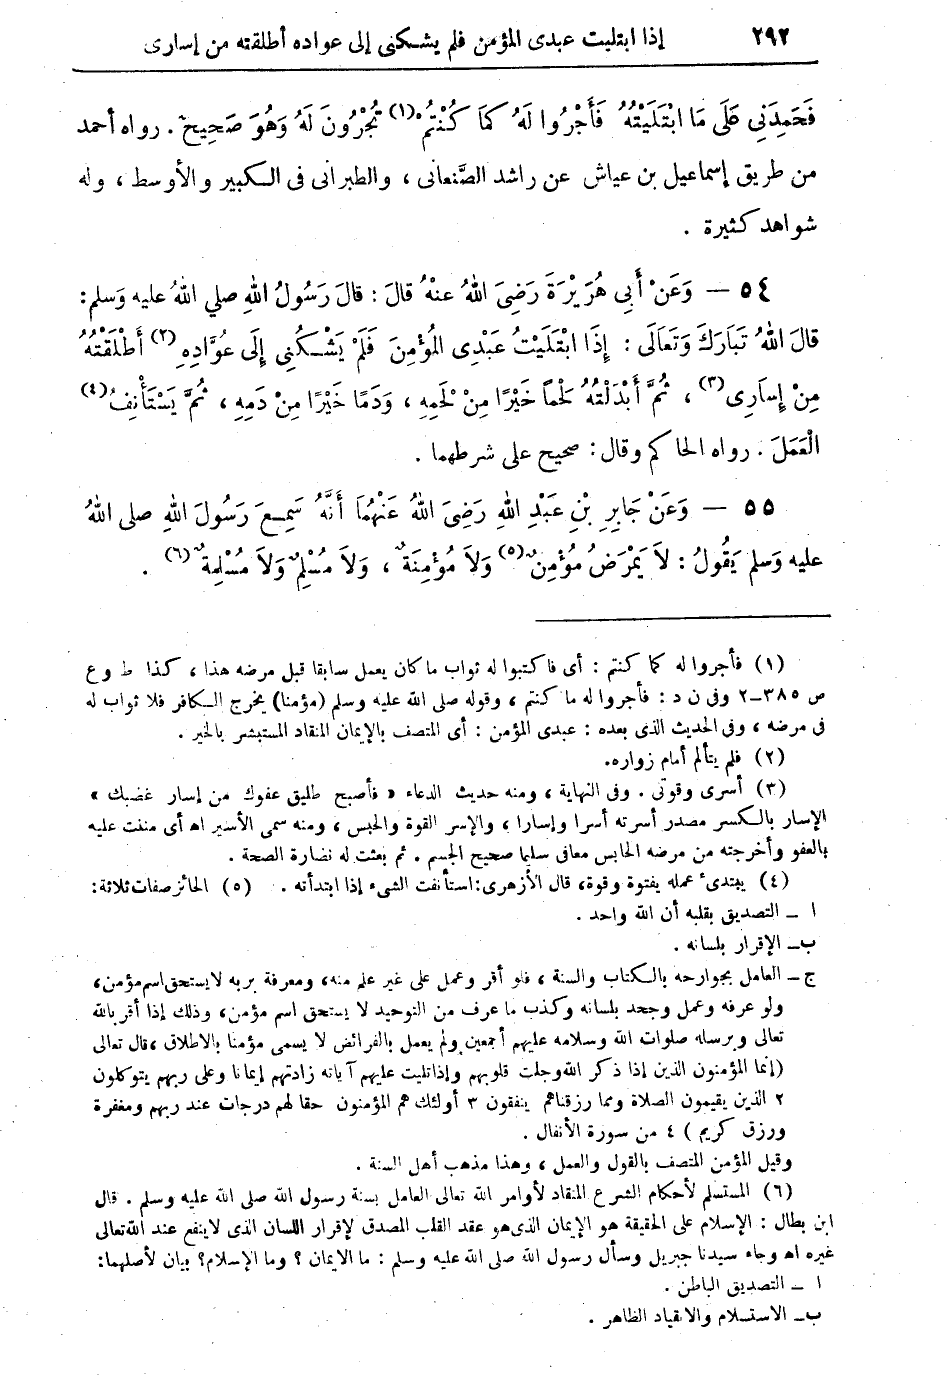 ٢٩٢ إذا ابتليت عبدى المؤمن فلم يشكنى إلى عواده أطلقته من إسارى
فَحَمِدَنِي عَلَى مَا ابْتَلَيْتُهُ فَأَجْرُوا لَهُ كَمَا كُنْتُمْ (١) تُجْرُونَ لَهُ وَهُوَ صَحِيحٌ . رواه أحمد
من طريق إسماعيل بن عياش عن راشد الصَّنعانى ، والطبرانى فى الكبير والأوسط ، وله
شواهد كثيرة .
٥٤ — وَعَنْ أَبِى هُرَيْرَةَ رَضِىَ اللهُ عنْهُ قالَ : قالَ رَسُولُ اللهِ صلي اللهُ عليه وَسلم :
قالَ اللهُ تَبَارَكَ وَتَعَالَى : إِذَا ابْتَلَيْتُ عَبْدِى المُؤْمِنَ فَلَمْ يَشْكُنِى إِلَى عُوَّادِهِ (٢) أَطْلَقْتُهُ
مِنْ إِسَارِى (٣) ، ثُمَّ أَبْدَلْتُهُ لَحْماً خَيْرًا مِنْ لَحْمِهِ ، وَدَمًا خَيْرًا مِنْ دَمِهِ ، ثُمَّ يَسْتَأْنِفُ (٤)
الْعَمَلَ . رواه الحاكم وقال : صحيح على شرطهما .
٥٥ — وَعَنْ جَابِرِ بْنِ عَبْدِ اللهِ رَضِىَ اللهُ عَنْهُمَا أَنَّهُ سَمِعَ رَسُولَ اللهِ صلى اللهُ
عليه وَسلم يَقُولُ : لاَ يَمْرَضُ مُؤْمِنٌ (٥) وَلاَ مُؤْمِنَةٌ ، وَلاَ مُسْلِمٌ وَلاَ مُسْلِمَةٌ (٦) .
(١) فأجروا له كما كنتم : أى فاكتبوا له ثواب ماكان يعمل سابقا قبل مرضه هذا ، كذا ط و ع
ص ٣٨٥-٢ وفى ن د : فأجروا له ما كنتم ، وقوله صلى الله عليه وسلم (مؤمنا) يخرج الكافر فلا ثواب له
فى مرضه ، وفى الحديث الذى بعده : عبدى المؤمن : أى المتصف بالإيمان المنقاد المستبشر بالخير .
(٢) فلم يتألم أمام زواره.
(٣) أسرى وقوتى . وفى النهاية ، ومنه حديث الدعاء « فأصبح طليق عفوك من إسار غضبك »
الإسار بالكسر مصدر أسرته أسرا وإسارا ، والإسر القوة والحبس ، ومنه سمى الأسير اه أى مننت عليه
بالعفو وأخرجته من مرضه الحابس معافى سليما صحيح الجسم . ثم بعثت له نضارة الصحة .
(٤) يبتدىء عمله بفتوة وقوة، قال الأزهرى: استأنفت الشىء إذا ابتدأته . (٥) الحائز صفات ثلاثة :
ا — التصديق بقلبه أن الله واحد .
ب— الإقرار بلسانه .
ج — العامل بجوارحه بالكتاب والسنة ، فلو أقر وعمل على غير علم منه، ومعرفة بربه لا يستحق اسم مؤمن،
ولو عرفه وعمل وجحد بلسانه وكذب ما عرف من التوحيد لا يستحق اسم مؤمن، وذلك إذا أقر بالله
تعالى وبرسله صلوات الله وسلامه عليهم أجمعين ولم يعمل بالفرائض لا يسمى مؤمنا بالاطلاق ،قال تعالى
(إنما المؤمنون الذين إذا ذكر الله وجلت قلوبهم وإذا تليت عليهم آياته زادتهم إيمانا وعلى ربهم يتوكلون
٢ الذين يقيمون الصلاة ومما رزقناهم ينفقون ٣ أولئك هم المؤمنون حقا لهم درجات عند ربهم ومغفرة
ورزق كريم ) ٤ من سورة الأنفال .
وقيل المؤمن المتصف بالقول والعمل ، وهذا مذهب أهل السنة .
(٦) المستسلم لأحكام الشرع المنقاد لأوامر الله تعالى العامل بسنة رسول الله صلى الله عليه وسلم . قال
ابن بطال : الإسلام على الحقيقة هو الإيمان الذى هو عقد القلب المصدق لإقرار اللسان الذى لا ينفع عند الله تعالى
غيره اه وجاء سيدنا جبريل وسأل رسول الله صلى الله عليه وسلم : ما الايمان ؟ وما الإسلام؟ بيان لأصلهما:
ا — التصديق الباطن .
ب— الاستسلام والانقياد الظاهر .